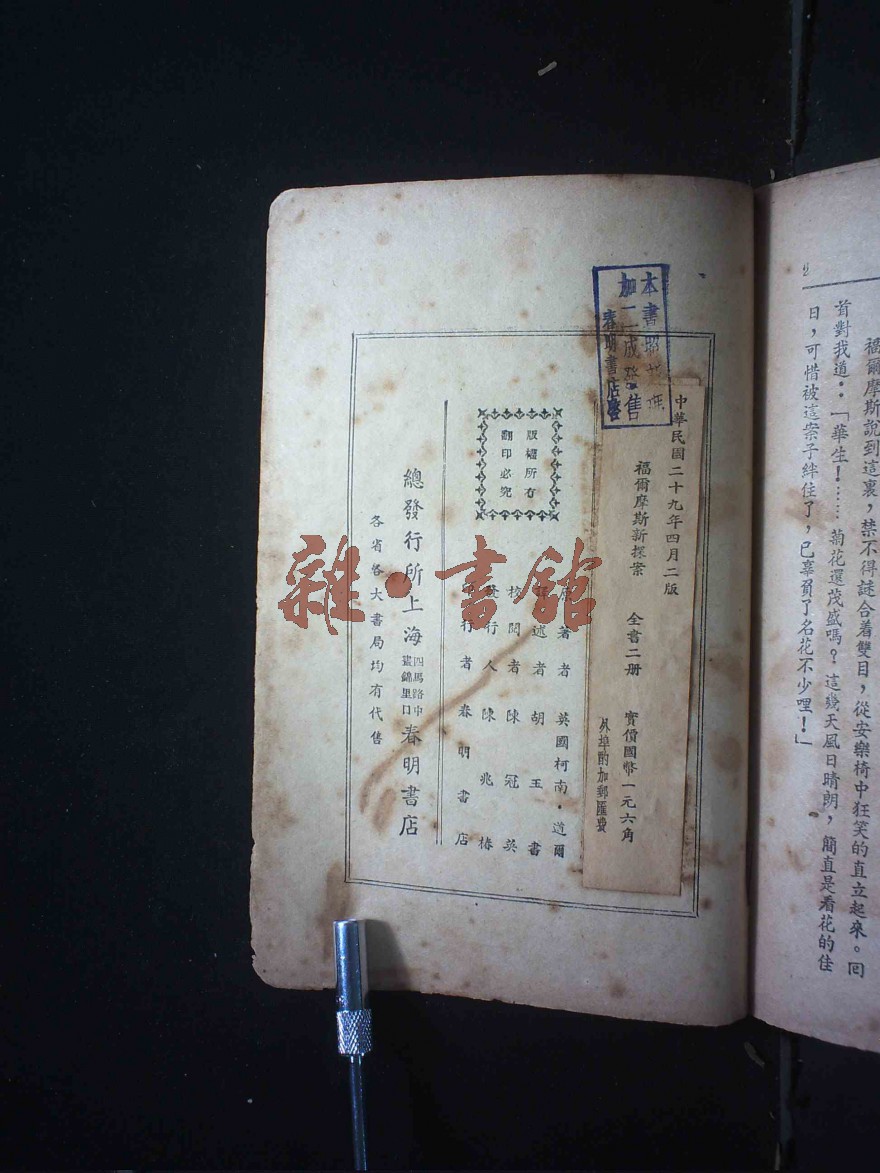 2
福爾摩斯說到這裏，禁不得謎合着雙目，從安樂椅中狂笑的直立起來。回
首對我道：「華生！……菊花還茂盛嗎？這幾天風日晴朗，簡直是看花的佳
日，可惜被這案子絆住了，已辜負了名花不少哩！」
本書照
加二成發售
春明書店啓
中華民國二十九年四月二版
福爾摩斯新探案　全書二册　實價國幣一元六角
外埠酌加郵匯費
原著者　英國柯南·道爾
述者　胡玉書
校閱者　陳冠英
發行人　陳兆椿
印行者　春明書店
版權所有
翻印必究
總發行所上海四馬路中畫錦里口春明書店
各省各大書局均有代售
雜·書館